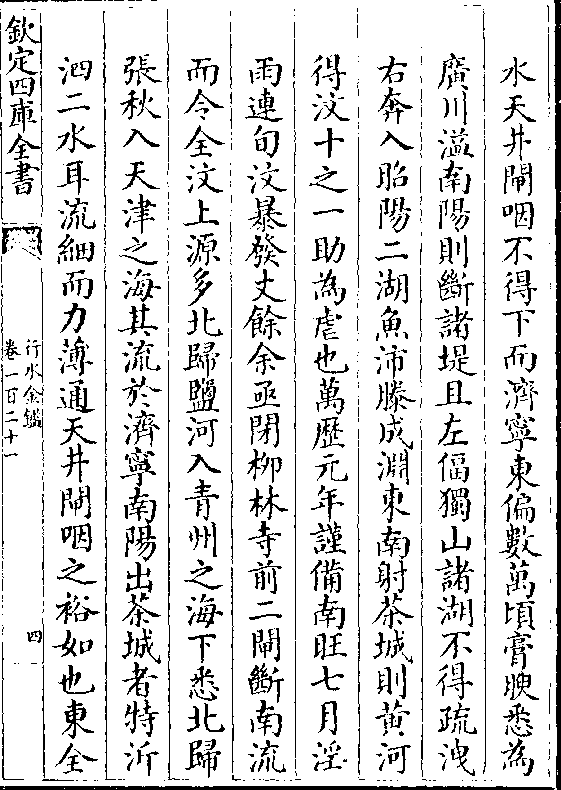 水天井閘咽不得下而濟寧東偏數萬頃膏腴悉為
廣川溢南陽則斷諸堤且左偪獨山諸湖不得疏洩
右奔入昭陽二湖魚沛滕成淵東南射茶城則黄河
得汶十之一助為虐也萬歴元年謹備南旺七月淫
雨連旬汶暴發丈餘余亟閉柳林寺前二閘斷南流
而令全汶上源多北歸鹽河入青州之海下悉北歸
張秋入天津之海其流於濟寧南陽出茶城者特沂
泗二水耳流細而力薄通天井閘咽之裕如也東全
欽定四庫全書
行水金鑑
卷一百二十一
四